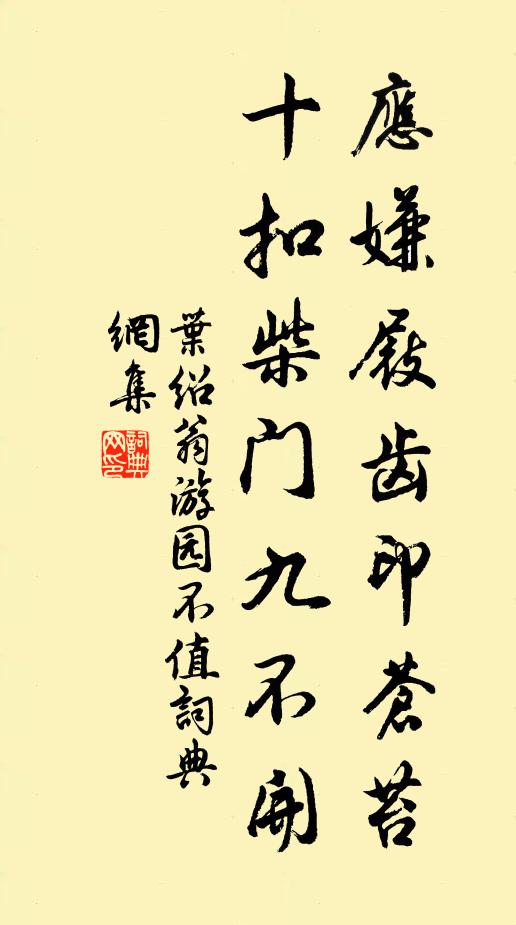 應嫌屐齒印蒼苔
十扣柴門九不開
葉紹翁游园不值詞典
網集
詞典網印